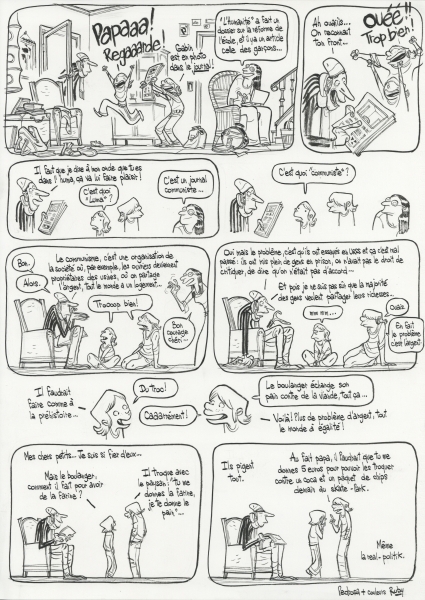 Papaaa!
Regaaarde!
Gabin
est en photo
dans le journal!
"L'Humanité" a fait un
dossier sur la réforme de
l'école, et il y a un article
celle des garçons...
Ah ouaiiis...
On reconnaît
ton front...
Ouéé!!
Trop bien!
Il faut que je dise à mon oncle que tu es
dans l'Huma, ça va lui faire plaisir!
C'est quoi
"Luma"?
C'est un journal
communiste...
C'est quoi "communiste"?
Bon.
Alors.
Le communisme, c'est une organisation de
la société où, par exemple, les ouvriers deviennent
propriétaires des usines, où on partage
l'argent, tout le monde a un logement...
Troooop bien!
Bon
courage
chéri...
Oui mais le problème, c'est qu'ils ont essayé en URSS et ça s'est mal
passé: ils ont mis plein de gens en prison, on n'avait pas le droit de
critiquer, de dire qu'on n'était pas d'accord...
Et puis je ne suis pas sûr que la majorité
des gens veuillent partager leurs richesses...
mm mm...
Ouais.
En fait
le problème
c'est l'argent
Il faudrait
faire comme à
la préhistoire...
Du troc!
Caaarrément!
Le boulanger échange son
pain contre de la viande, tout ça...
Voilà! Plus de problème d'argent, tout
le monde à égalité!
Mes chers petits... Je suis si fier d'eux...
Mais le boulanger,
comment il fait pour avoir
de la farine?
Il troque avec
le paysan! "Tu me
donnes la farine,
je te donne le
pain"...
Ils pigent
tout.
Au fait papa, il faudrait que tu me
donnes 5 euros pour pouvoir les troquer
contre un coca et un paquet de chips
demain au skate-park.
Même
la real-politik.
Pedrosa + couleurs Ruby